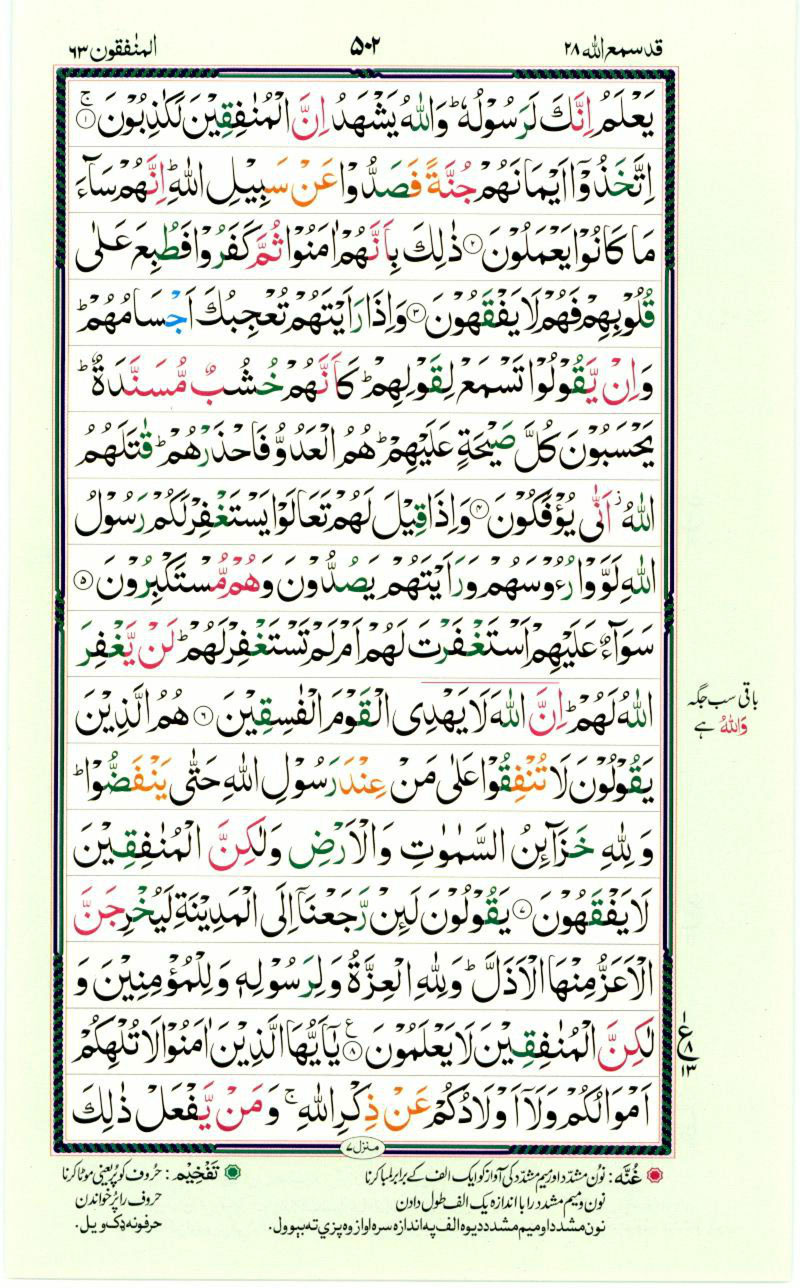 قد سمع الله ٢٨
۵۰۲
المنٰفقون ٦٣
يَعْلَمُ اِنَّكَ لَرَسُوْلُهٗ ؕ وَاللّٰهُ يَشْهَدُ اِنَّ الْمُنٰفِقِيْنَ لَكٰذِبُوْنَ ۚ ۝۱
اِتَّخَذُوْۤا اَيْمَانَهُمْ جُنَّةً فَصَدُّوْا عَنْ سَبِيْلِ اللّٰهِ ؕ اِنَّهُمْ سَآءَ
مَا كَانُوْا يَعْمَلُوْنَ ۝۲ ذٰلِكَ بِاَنَّهُمْ اٰمَنُوْا ثُمَّ كَفَرُوْا فَطُبِعَ عَلٰى
قُلُوْبِهِمْ فَهُمْ لَا يَفْقَهُوْنَ ۝۳ وَاِذَا رَاَيْتَهُمْ تُعْجِبُكَ اَجْسَامُهُمْ ؕ
وَاِنْ يَّقُوْلُوْا تَسْمَعْ لِقَوْلِهِمْ ؕ كَاَنَّهُمْ خُشُبٌ مُّسَنَّدَةٌ ؕ
يَحْسَبُوْنَ كُلَّ صَيْحَةٍ عَلَيْهِمْ ؕ هُمُ الْعَدُوُّ فَاحْذَرْهُمْ ؕ قٰتَلَهُمُ
اللّٰهُ ؗ اَنّٰى يُؤْفَكُوْنَ ۝۴ وَاِذَا قِيْلَ لَهُمْ تَعَالَوْا يَسْتَغْفِرْ لَكُمْ رَسُوْلُ
اللّٰهِ لَوَّوْا رُءُوْسَهُمْ وَرَاَيْتَهُمْ يَصُدُّوْنَ وَهُمْ مُّسْتَكْبِرُوْنَ ۝۵
سَوَآءٌ عَلَيْهِمْ اَسْتَغْفَرْتَ لَهُمْ اَمْ لَمْ تَسْتَغْفِرْ لَهُمْ ؕ لَنْ يَّغْفِرَ
اللّٰهُ لَهُمْ ؕ اِنَّ اللّٰهَ لَا يَهْدِى الْقَوْمَ الْفٰسِقِيْنَ ۝۶ هُمُ الَّذِيْنَ
باقی سب جگہ
وَاللّٰهُ ہے
يَقُوْلُوْنَ لَا تُنْفِقُوْا عَلٰى مَنْ عِنْدَ رَسُوْلِ اللّٰهِ حَتّٰى يَنْفَضُّوْا ؕ
وَلِلّٰهِ خَزَآئِنُ السَّمٰوٰتِ وَالْاَرْضِ وَلٰكِنَّ الْمُنٰفِقِيْنَ
لَا يَفْقَهُوْنَ ۝۷ يَقُوْلُوْنَ لَئِنْ رَّجَعْنَاۤ اِلَى الْمَدِيْنَةِ لَيُخْرِجَنَّ
الْاَعَزُّ مِنْهَا الْاَذَلَّ ؕ وَلِلّٰهِ الْعِزَّةُ وَلِرَسُوْلِهٖ وَلِلْمُؤْمِنِيْنَ وَ
لٰكِنَّ الْمُنٰفِقِيْنَ لَا يَعْلَمُوْنَ ۝۸ ع يٰۤاَيُّهَا الَّذِيْنَ اٰمَنُوْا لَا تُلْهِكُمْ
ع
۸
۱۳
اَمْوَالُكُمْ وَلَاۤ اَوْلَادُكُمْ عَنْ ذِكْرِ اللّٰهِ ۚ وَمَنْ يَّفْعَلْ ذٰلِكَ
منزل ۷
غُنَّه: نُون مشدّد اور میم مشدّد کی آواز کو ایک الف کے برابر لمبا کرنا
نون و میم مشدد را با اندازه یک الف طول دادن
نون مشدد او میم مشدد دیوه الف په اندازه سره اواز وه پزې ته بېوول.
تَفْخِیْم: حُروف کو پُر یعنی موٹا کرنا
حروف را پُر خواندن
حرفونه ډک ویل.